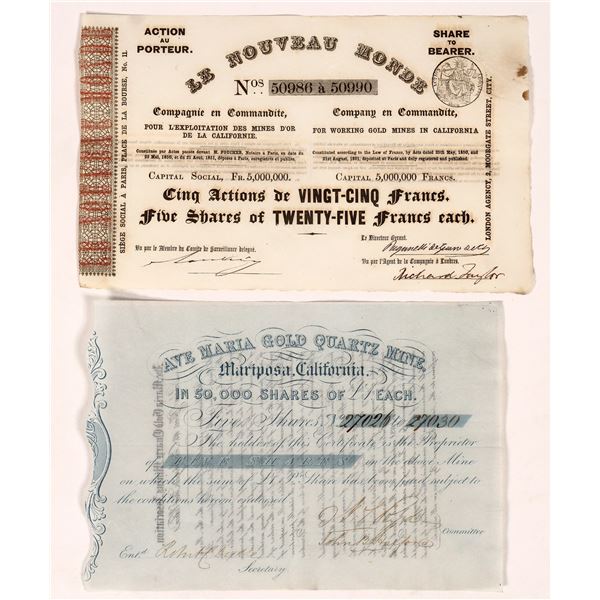 ACTION
AU
PORTEUR.
SHARE
TO
BEARER.
LE NOUVEAU MONDE
Nos 50986 à 50990
Compagnie en Commandite,
POUR L'EXPLOITATION DES MINES D'OR
DE LA CALIFORNIE.
Constituée par Actes passés devant M. FOUCHER, Notaire à Paris, en date du
20 Mai, 1850, et du 21 Août, 1851, déposés à Paris, enregistrés et publiés.
CAPITAL SOCIAL, FR. 5,000,000.
Company en Commandite,
FOR WORKING GOLD MINES IN CALIFORNIA
Constituted according to the Law of France, by Acts dated 20th May, 1850, and
21st August, 1851, deposited in Paris and duly registered and published.
CAPITAL 5,000,000 FRANCS.
Cinq Actions de VINGT-CINQ Francs.
Five Shares of TWENTY-FIVE Francs each.
Vu par le Membre du Comité de Surveillance délégué.
Le Directeur Gérant.
Vu par l'Agent de la Compagnie à Londres.
Richard Taylor
SIÉGE SOCIAL À PARIS, PLACE DE LA BOURSE, No. 11.
LONDON AGENCY, 2, MOORGATE STREET, CITY.
AVE MARIA GOLD QUARTZ MINE.
Mariposa, California.
IN 50,000 SHARES OF £1 EACH.
Five Shares, No 27026 to 27030
The holder of this Certificate is the Proprietor
of FIVE SHARES in the above Mine
on which the sum of £1 Pr Share has been paid subject to
the conditions hereon endorsed.
Committee
Entd.
Secretary